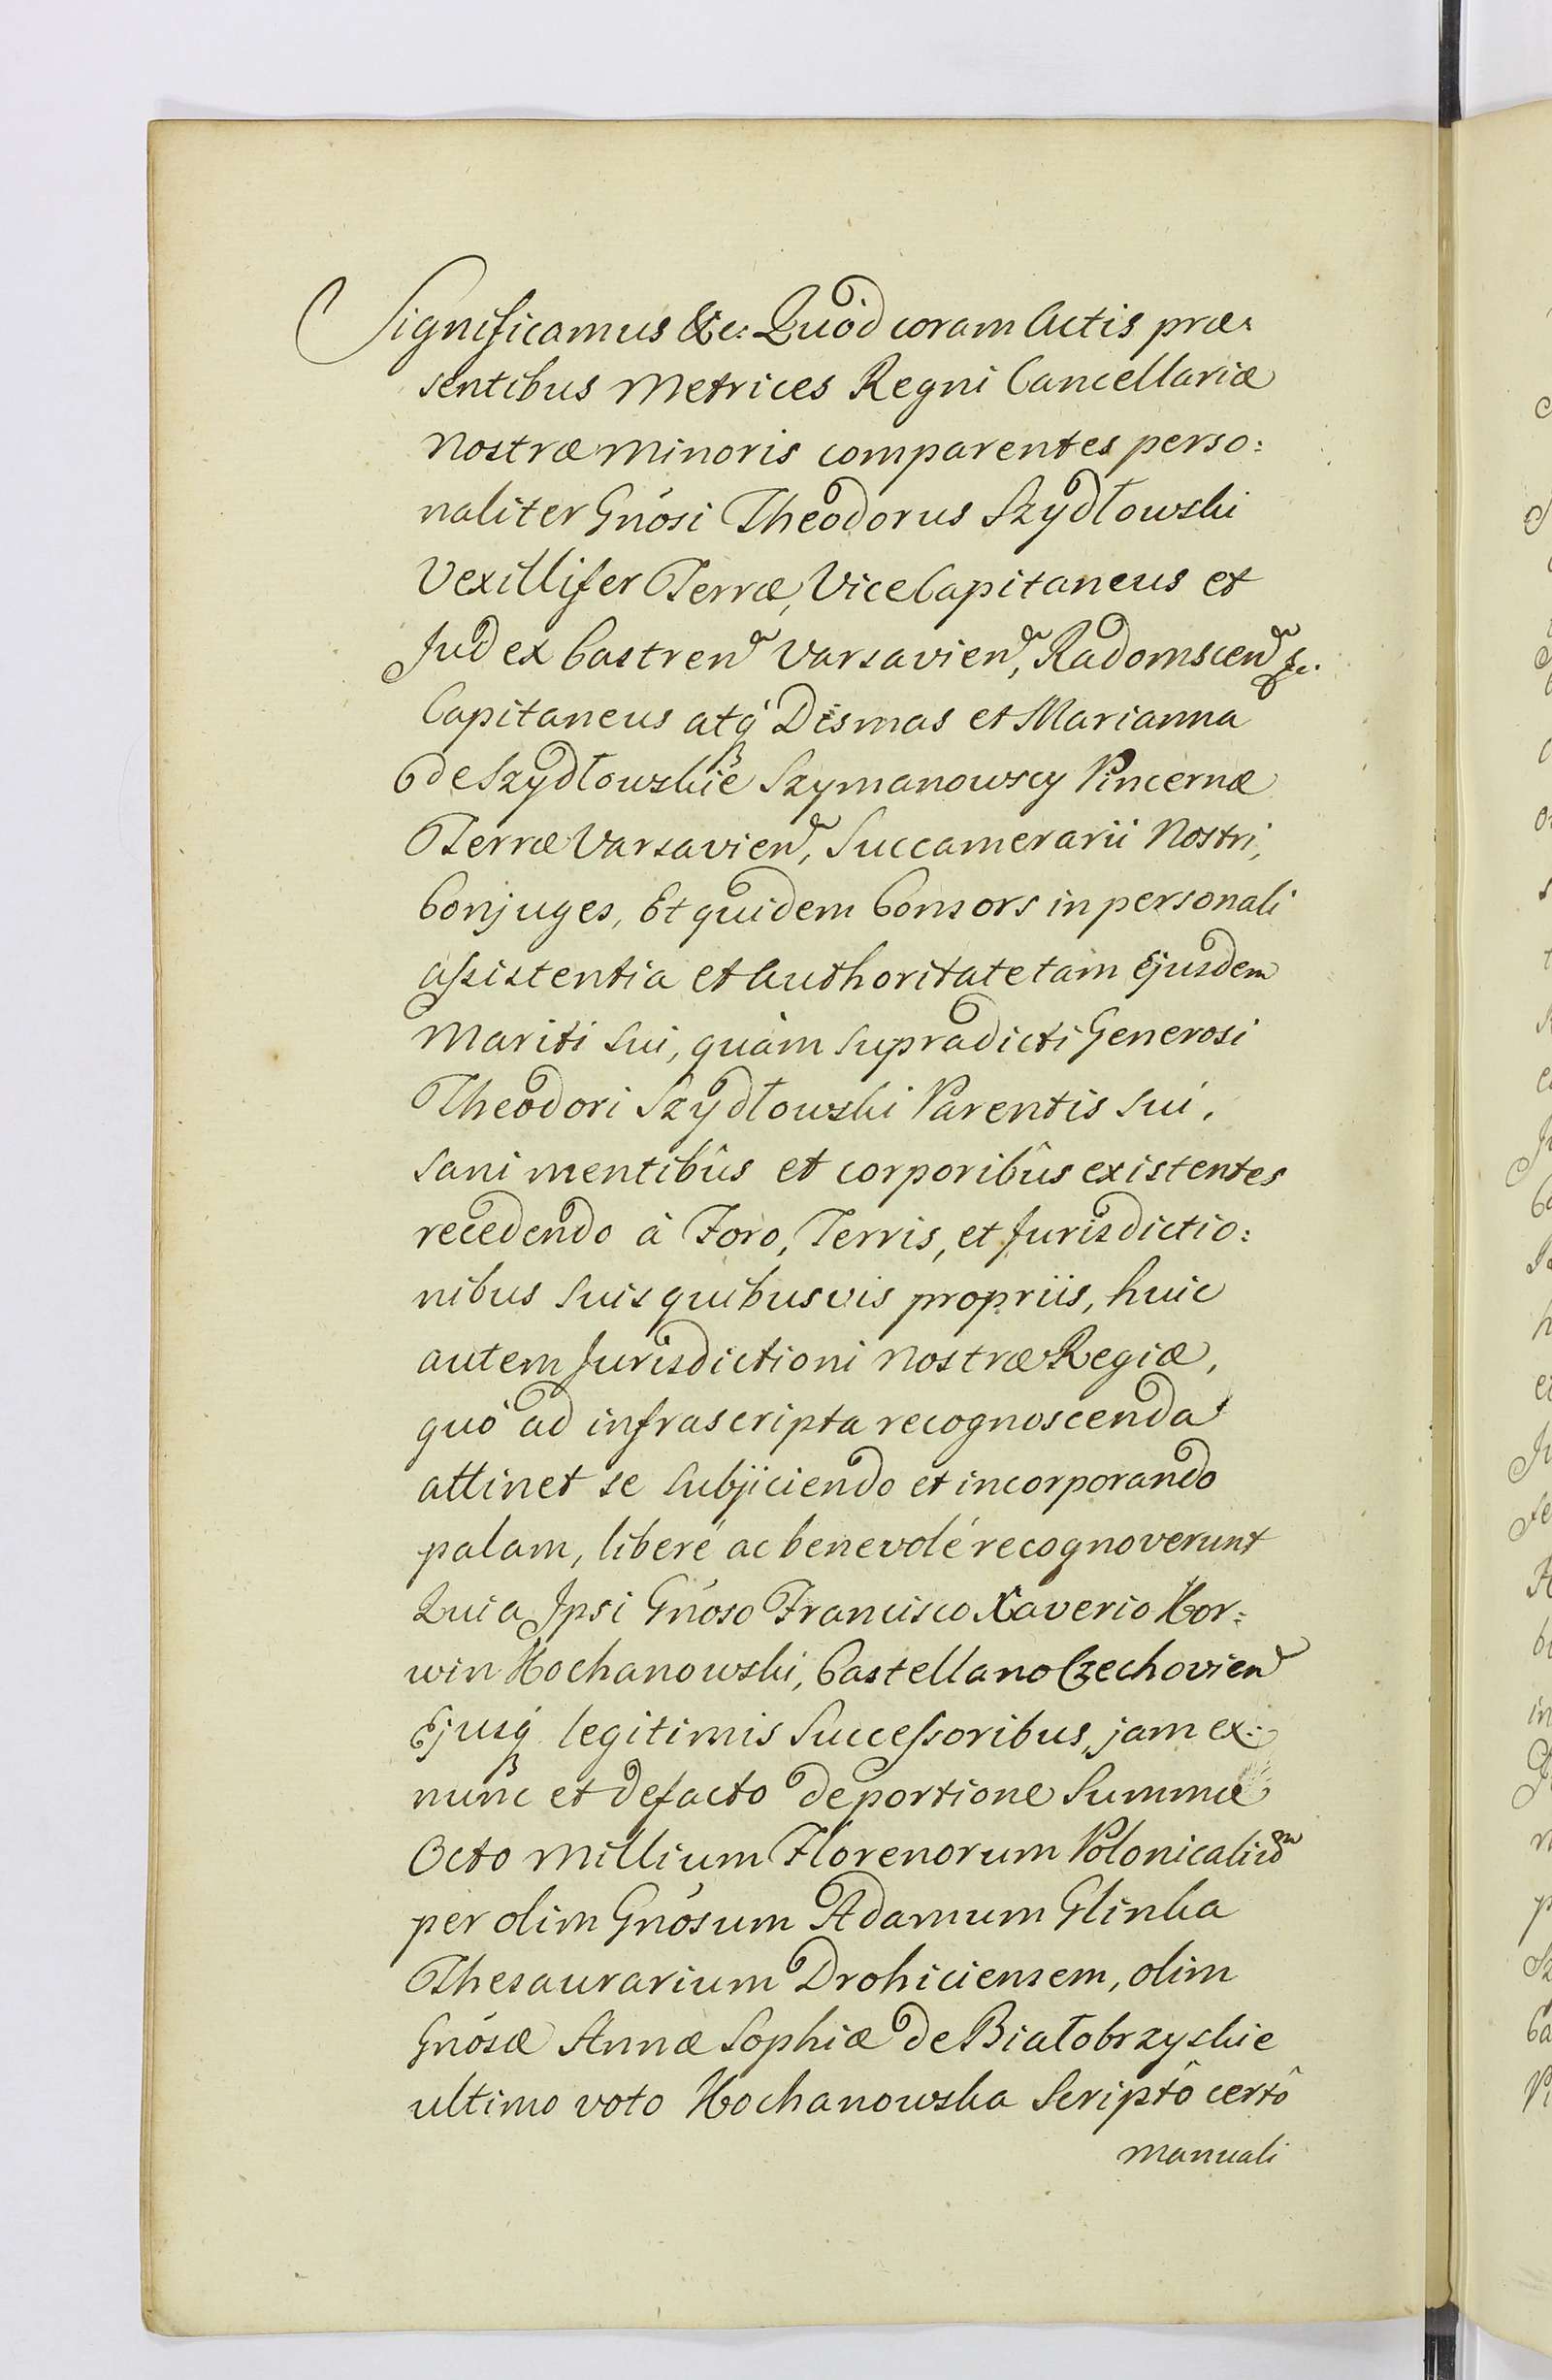 Significamus &c: Quòd coram Actis præ:
sentibus Metrices Regni Cancellariæ
Nostræ Minoris comparentes perso:
naliter Gnósi Theodorus Szydłowski
Vexillifer Terræ, ViceCapitaneus et
Judex Castren Varsavien, Radomscen &c.
Capitaneus atq́ Dismas et Marianna
de Szydłowskie Szymanowscy Pincernæ
Terræ Varsavien, Succamerarii Nostri,
Conjuges, Et quidem Consors in personali
assistentia et Authoritate tam Ejusdem
Mariti Sui, quàm Supradicti Generosi
Theodori Szydłowski Parentis Sui,
Sani mentibûs et corporibûs existentes
recedendo à Foro, Terris, et Jurisdictio:
nibus Suis quibusvis propriis, huic
autem Jurisdictioni Nostræ Regiæ,
quó ad infrascripta recognoscenda
attinet se Subjiciendo et incorporando
palam, liberé ac benevolé recognoverunt
Quia Ipsi Gnóso Francisco Xaverio Kor:
win Kochanowski, Castellano Czechovien
Ejusq́ legitimis Successoribus, jam ex:
nunc et defacto de portione Summæ
Octo Millium Florenorum Polonicaliū
per olim Gnósum Adamum Glinka
Thesaurarium Drohiciensem, olim
Gnósæ Annæ Sophiæ de Białobrzyskie
ultimo voto Kochanowska Scriptô certô
manuali